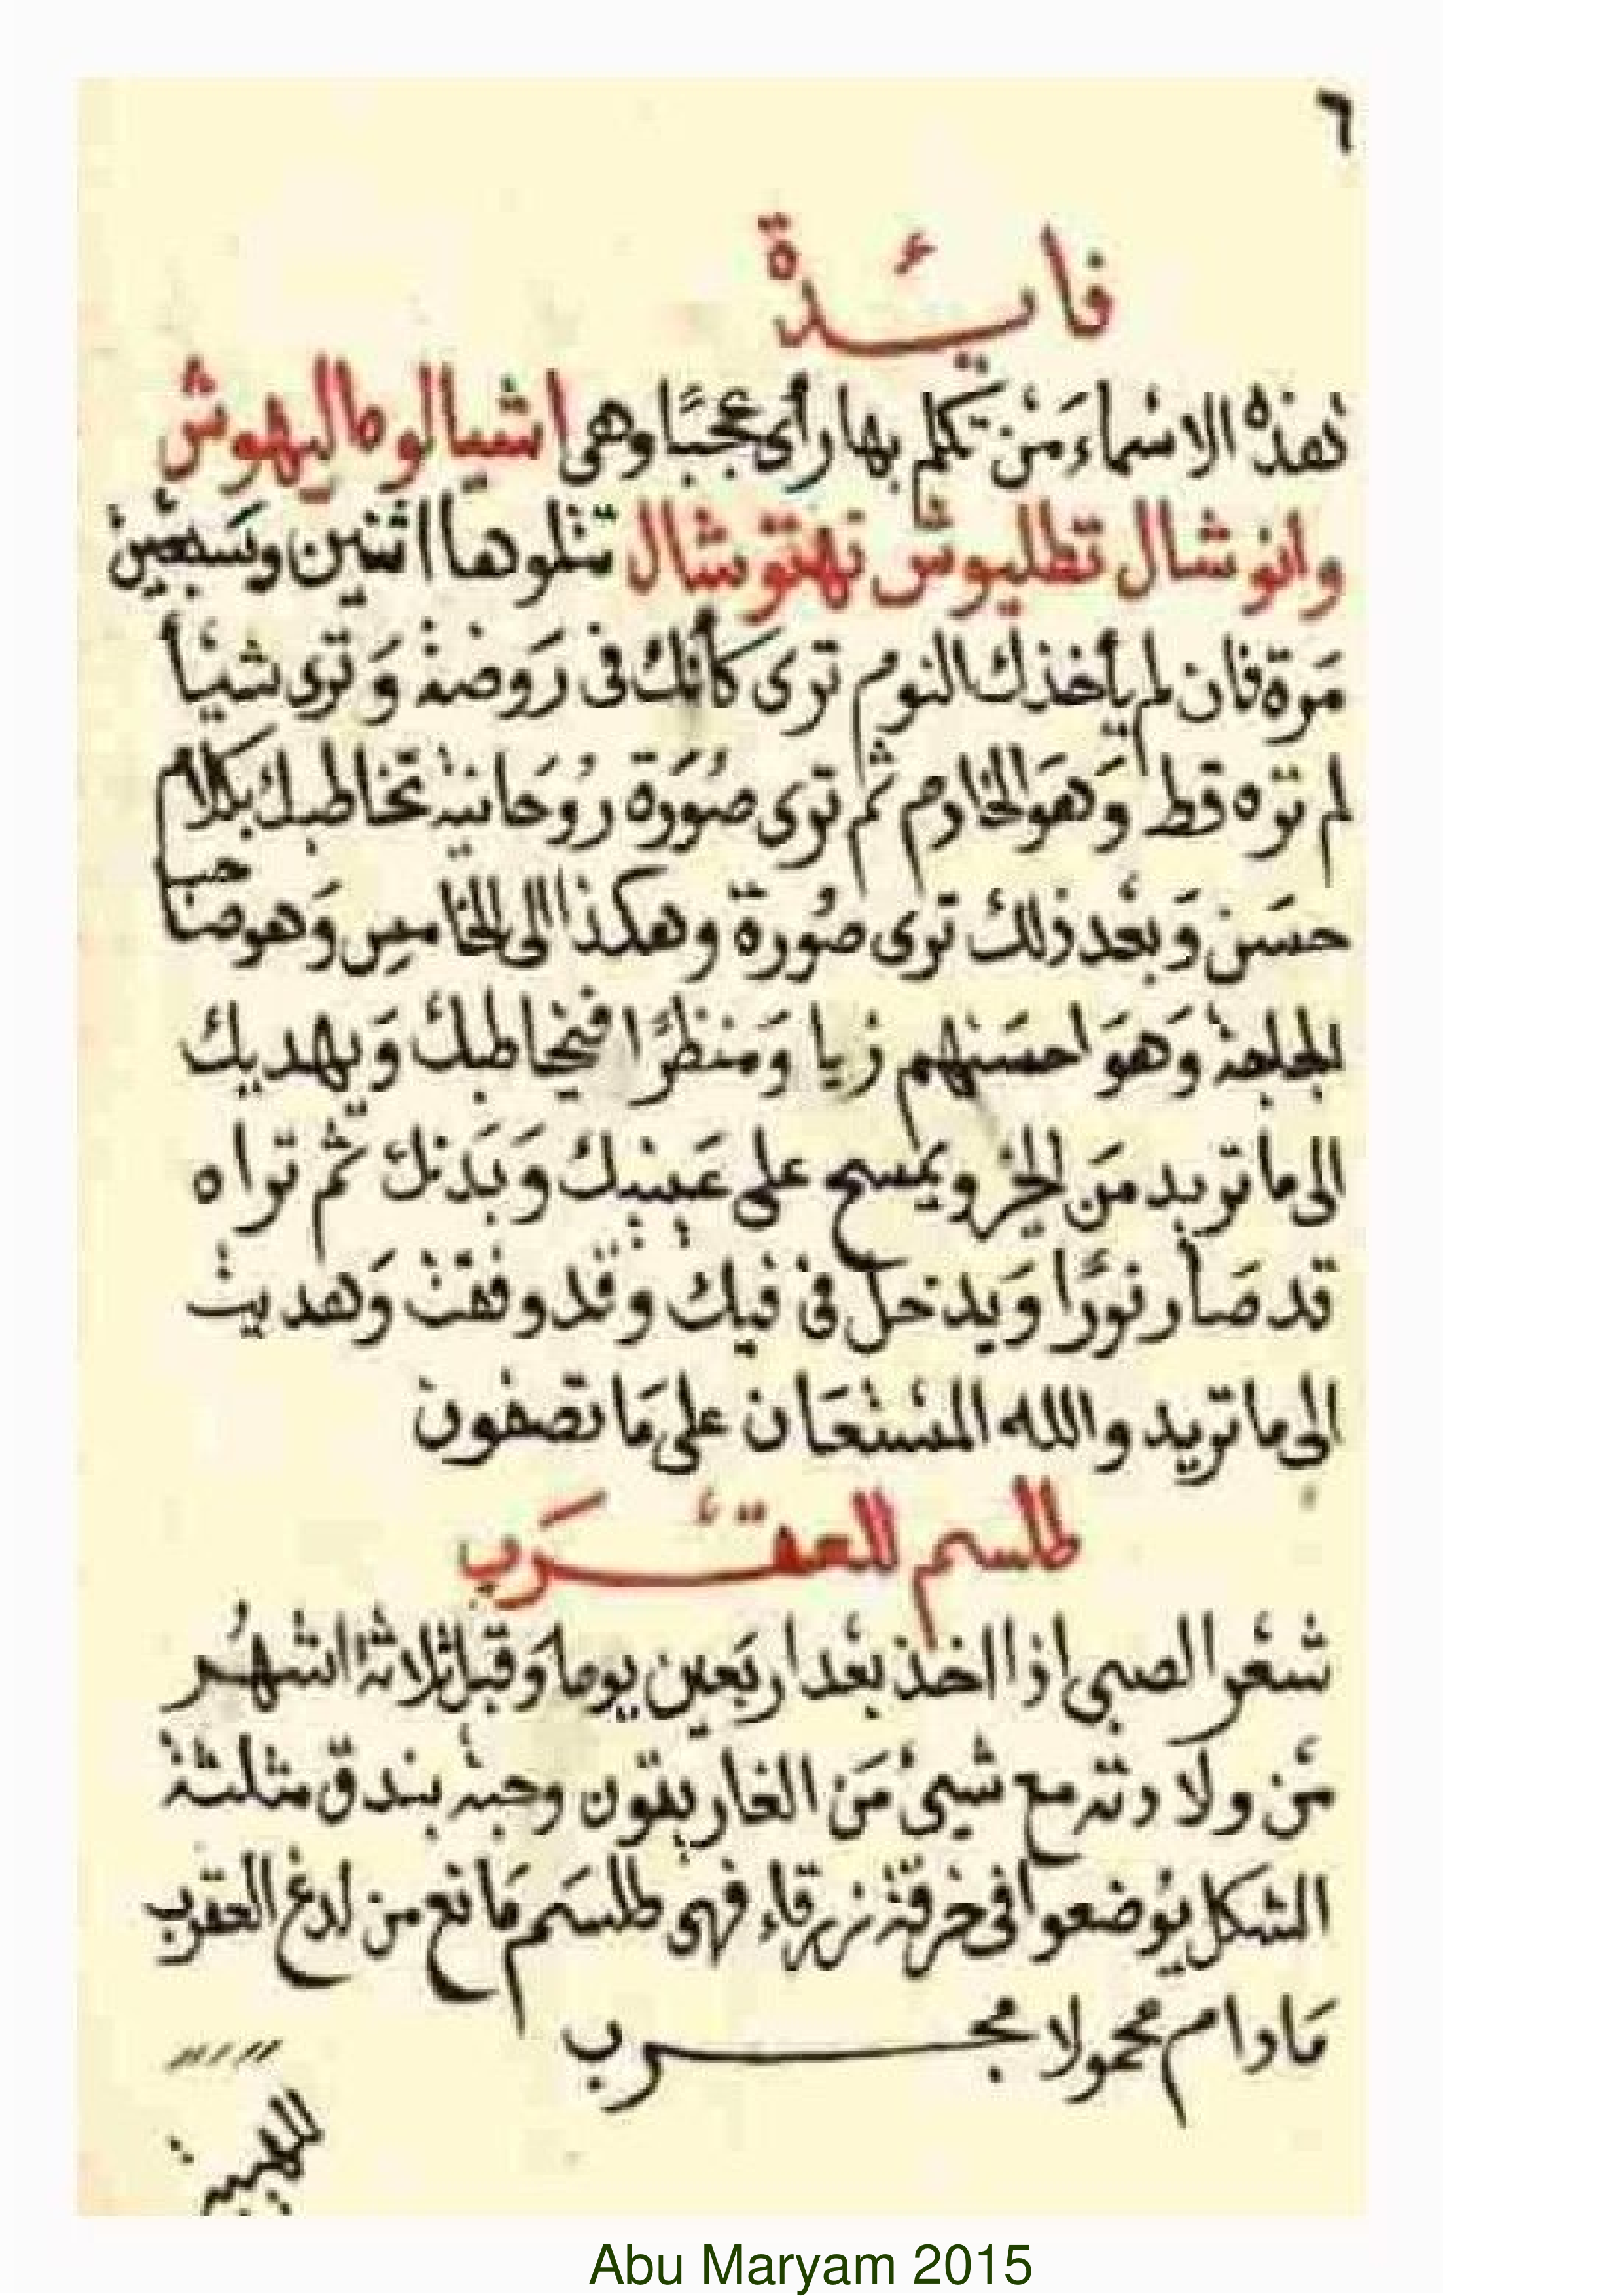 ٦
فايئدة
نهذه الاسماء من تكلم بها رأى عجبًا وهي اشيالو طاليهوش
وانوشال تطليوش نهتوشال تتلوها اثنين وسبعين
مرة فان لم يأخذك النوم ترى كأنك في روضة وترى شيئا
لم تره قط وهو الخادم ثم ترى صورة روحانية تخاطبك بكلام
حسن وبعد ذلك ترى صورة وهكذا الى الخامس وهو صاحب
الجلجلة وهو احسنهم زيا ومنظرًا فيخاطبك ويهديك
الى ما تريد من الخير ويمسح على عينيك وبدنك ثم تراه
قد صار نورًا ويدخل في فيك وقد وفقت وهديت
الى ما تريد والله المستعان على ما تصفون
طلسم للعقرب
شعر الصبي اذا اخذ بعد اربعين يوما وقبل ثلاثة اشهر
من ولادته مع شيئ من الغاريقون وحبة بندق مثلثة
الشكل يوضعوا في خرقة زرقاء فهي طلسم مانع من لدغ العقرب
مادام محمولا مجرب
Abu Maryam 2015